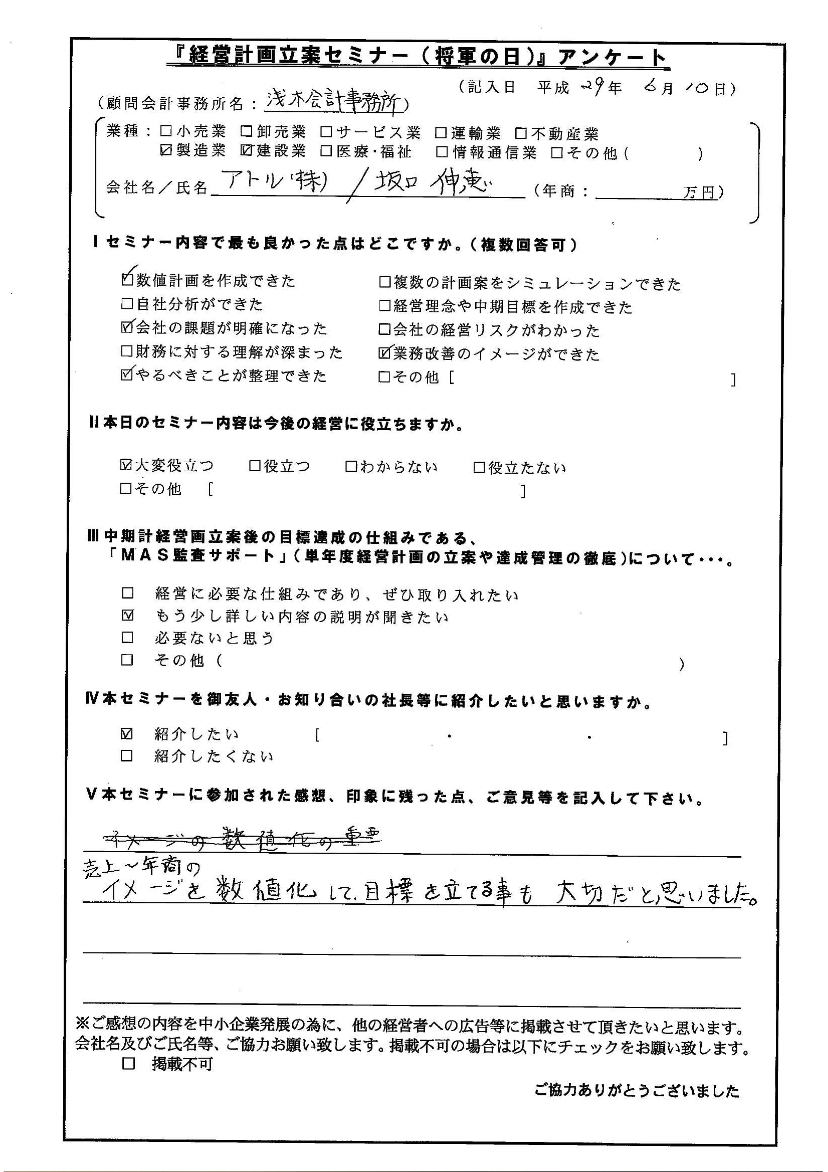 『経営計画立案セミナー(将軍の日)』アンケート
(記入日 平成 29年 6月 10日)
(顧問会計事務所名:浅木会計事務所)
業種:□小売業 □卸売業 □サービス業 □運輸業 □不動産業
☑製造業 ☑建設業 □医療・福祉 □情報通信業 □その他( )
会社名/氏名 アトル(株) / 坂口 伸恵 (年商: 万円)
Ⅰセミナー内容で最も良かった点はどこですか。(複数回答可)
☑数値計画を作成できた □複数の計画案をシミュレーションできた
□自社分析ができた □経営理念や中期目標を作成できた
☑会社の課題が明確になった □会社の経営リスクがわかった
□財務に対する理解が深まった ☑業務改善のイメージができた
☑やるべきことが整理できた □その他 [ ]
Ⅱ本日のセミナー内容は今後の経営に役立ちますか。
☑大変役立つ □役立つ □わからない □役立たない
□その他 [ ]
Ⅲ中期計経営画立案後の目標達成の仕組みである、
「MAS監査サポート」(単年度経営計画の立案や達成管理の徹底)について・・・。
□ 経営に必要な仕組みであり、ぜひ取り入れたい
☑ もう少し詳しい内容の説明が聞きたい
□ 必要ないと思う
□ その他 ( )
Ⅳ本セミナーを御友人・お知り合いの社長等に紹介したいと思いますか。
☑ 紹介したい [ ・ ・ ]
□ 紹介したくない
Ⅴ本セミナーに参加された感想、印象に残った点、ご意見等を記入して下さい。
イメージの数値化の重要
売上〜年商の
イメージを数値化して、目標を立てる事も 大切だと思いました。
※ご感想の内容を中小企業発展の為に、他の経営者への広告等に掲載させて頂きたいと思います。
会社名及びご氏名等、ご協力お願い致します。掲載不可の場合は以下にチェックをお願い致します。
□ 掲載不可
ご協力ありがとうございました